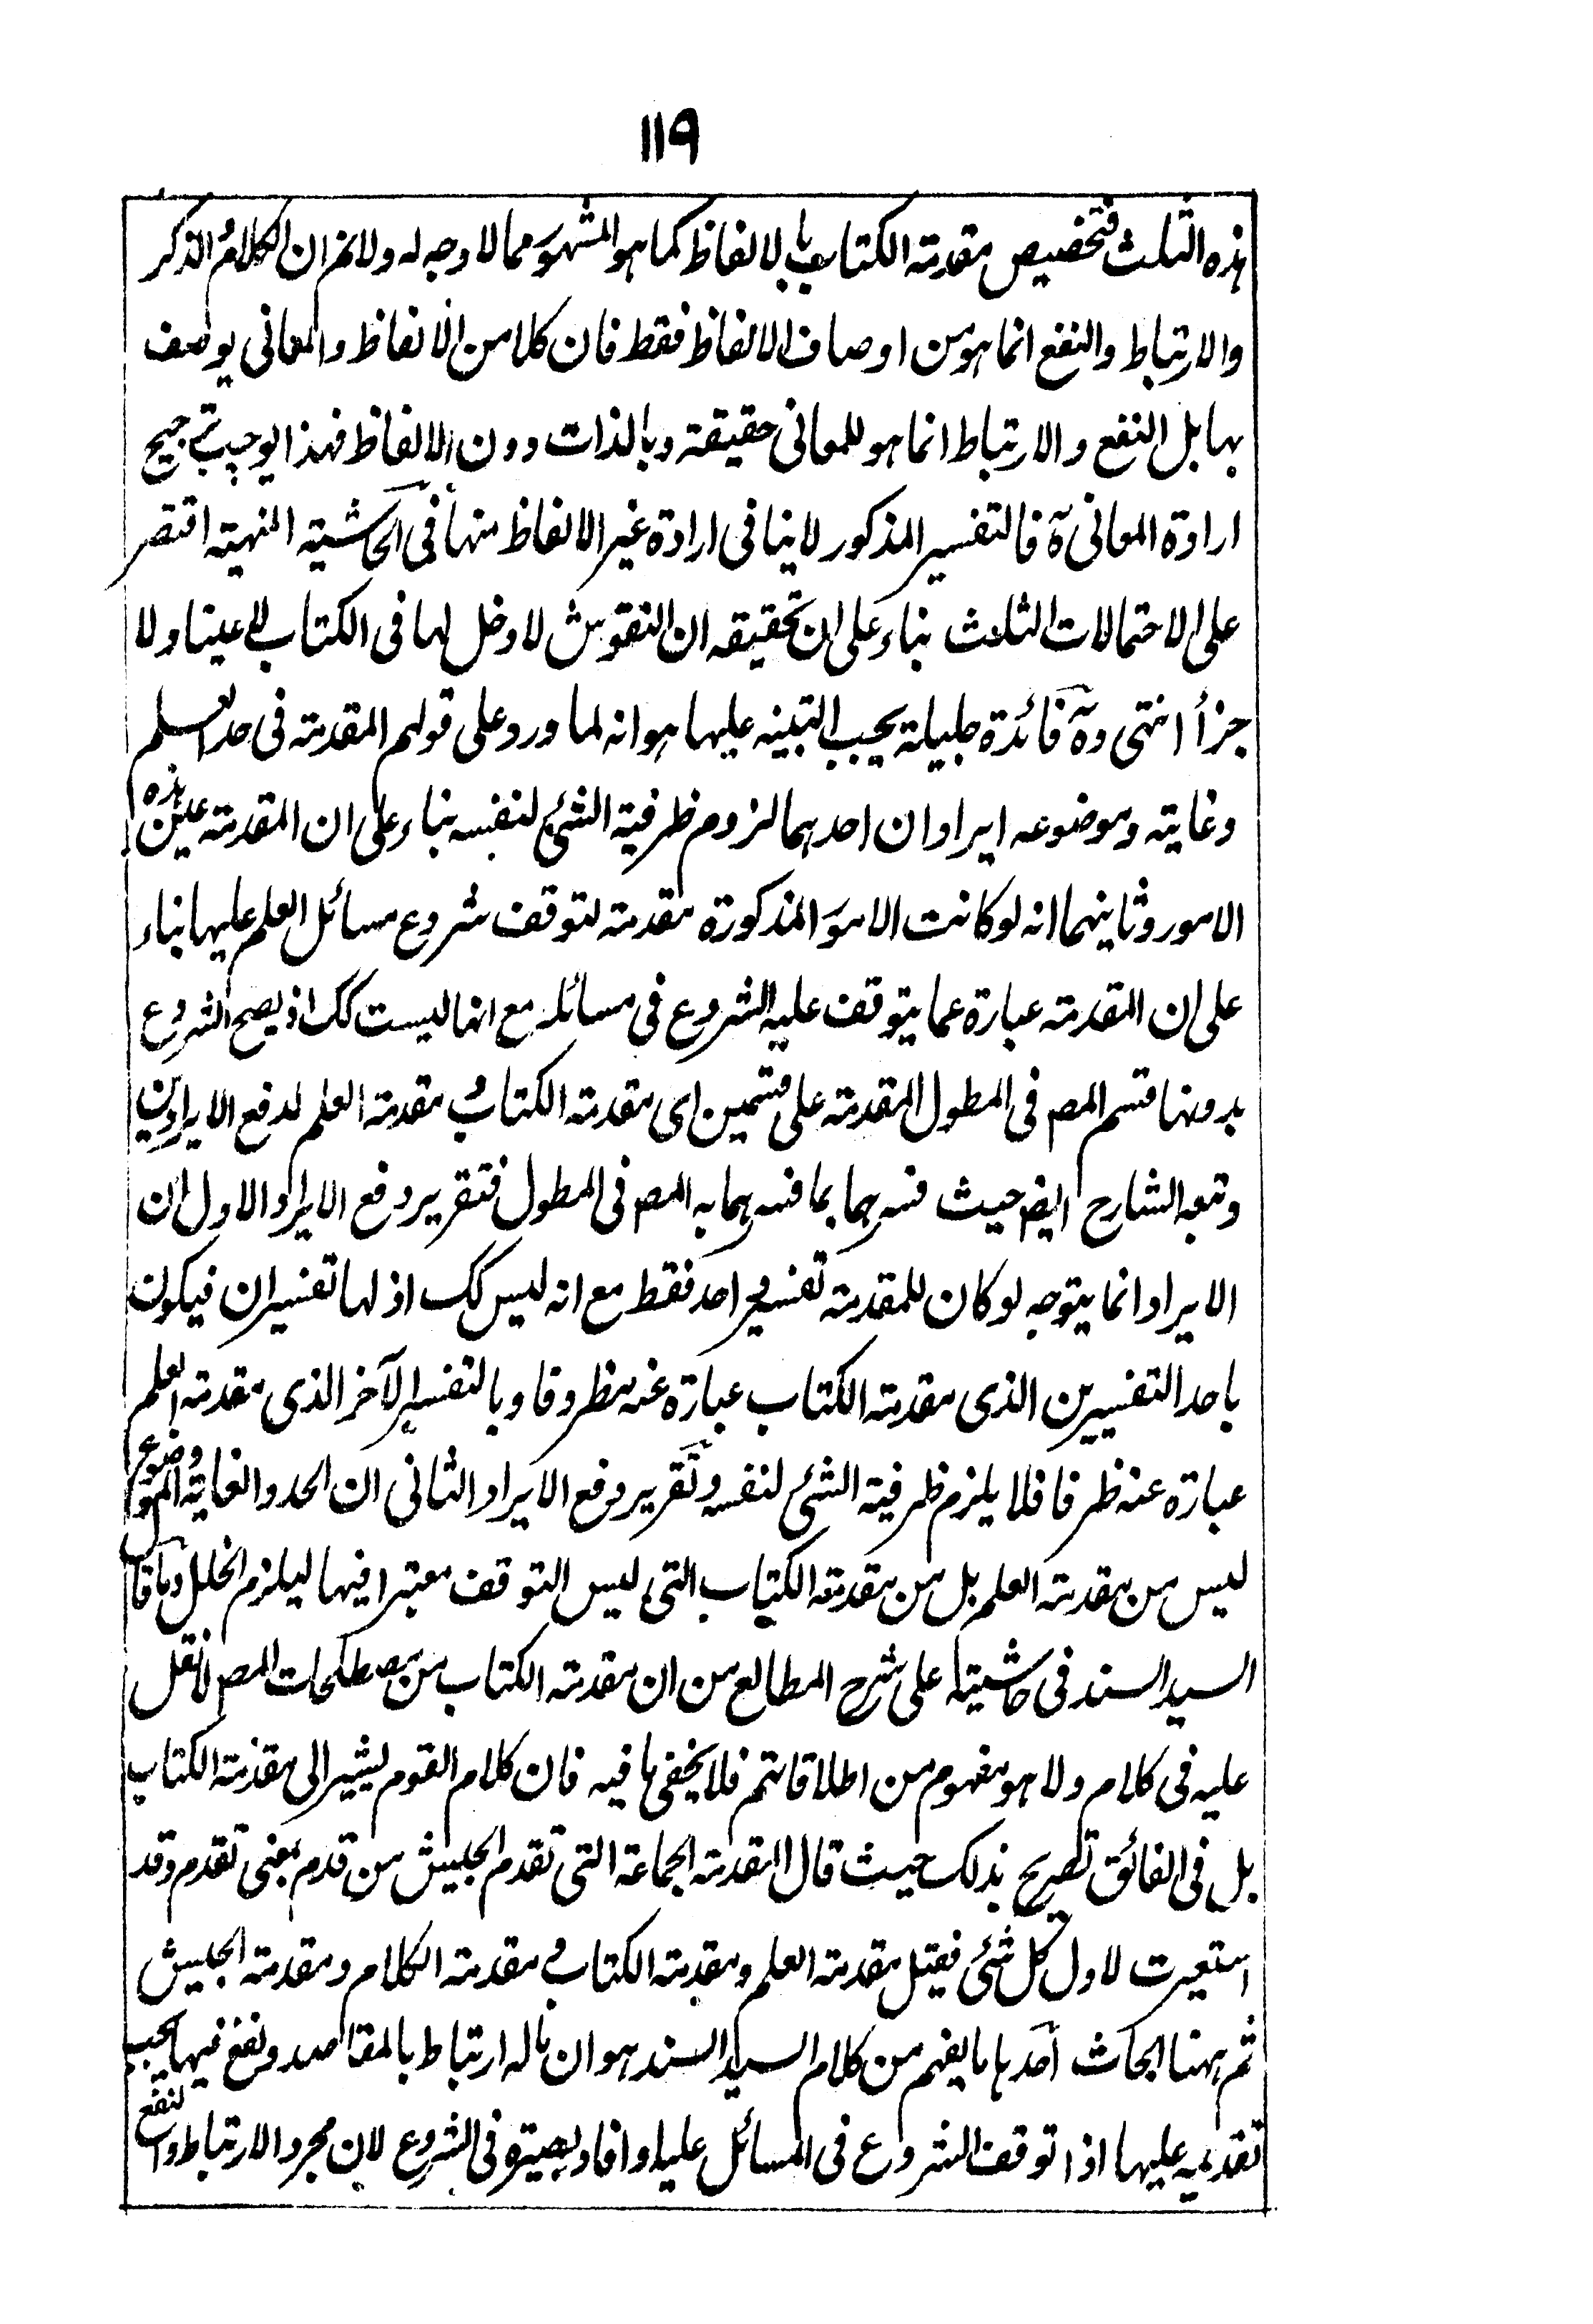 ١١٩
هذه الثلث فتخصيص مقدمة الكتاب بالالفاظ كما هو المشهور مما لا وجه له ولا نم ان الكلام الذكر
والارتباط والنفع انما هو من اوصاف الالفاظ فقط فان كلا من الالفاظ والمعانى يوصف
بها بل النفع والارتباط انما هو للمعانى حقيقة وبالذات دون الالفاظ فهذا يوجب ترجيح
ارادة المعانى قه فالتفسير المذكور لا ينافى ارادة غير الالفاظ منها فى الحاشية المنهية اقتصر
على الاحتمالات الثلث بناء على ان تحقيقه ان النقوش لا دخل لها فى الكتاب لا عينا ولا
جزأ انتهى وه فائدة جليلة يجب التنبيه عليها هو انه لما ورد على قولهم المقدمة فى حد العلم
وغايته وموضوعه ايرادان احدهما لزوم ظرفية الشئ لنفسه بناء على ان المقدمة عين هذه
الامور وثانيهما انه لو كانت الامور المذكورة مقدمة لتوقف شروع مسائل العلم عليها بناء
على ان المقدمة عبارة عما يتوقف عليه الشروع فى مسائله مع انها ليست كك اذ يصح الشروع
بدونها قسم المصـ فى المطول المقدمة على قسمين اى مقدمة الكتاب و مقدمة العلم لدفع الايرادين
وتبعه الشارح ايضـ حيث فسرهما بما فسرهما به المصـ فى المطول فتقرير دفع الايراد الاول ان
الايراد انما يتوجه لو كان للمقدمة تفسير واحد فقط مع انه ليس كك اذ لها تفسيران فيكون
باحد التفسيرين الذى مقدمة الكتاب عبارة عنه مظروفا وبالتفسير الآخر الذى مقدمة العلم
عبارة عنه ظرفا فلا يلزم ظرفية الشئ لنفسه وتقرير دفع الايراد الثانى ان الحد والغاية والموضوع
ليس من مقدمة العلم بل من مقدمة الكتاب التى ليس التوقف معتبرا فيها ليلزم الخلل وما قال
السيد السند فى حاشيته على شرح المطالع من ان مقدمة الكتاب من مصطلحات المصـ لا نقل
عليه فى كلام ولا هو مفهوم من اطلاقاتهم فلا يخفى ما فيه فان كلام القوم يشير الى مقدمة الكتاب
بل فى الفائق تصريح بذلك حيث قال المقدمة الجماعة التى تقدم الجيش من قدم بمعنى تقدم وقد
استعيرت لاول كل شئ فيقل مقدمة العلم ومقدمة الكتاب و مقدمة الكلام ومقدمة الجيش
ثم ههنا ابحاث احدها ما يفهم من كلام السيد السند هو ان ما له ارتباط بالمقاصد ونفع فيها يجب
تقديمه عليها اذا توقف الشروع فى المسائل عليه او افاد بصيرة فى الشروع لان مجرد الارتباط والنفع